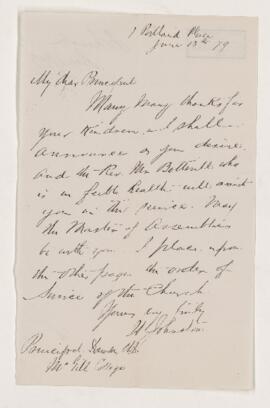 1 Portland Place
June 13th 79
My dear Principal
Many many thanks for
your kindness. I shall
announce as you desire
and the Rev. Mr. who
is in feeble health will assist
you in the service. May
the Master of Assemblies
be with you. I place upon
the other page the order of
Service of the Church
Yours very truly
H Johnston
Principal Dawson
McGill College